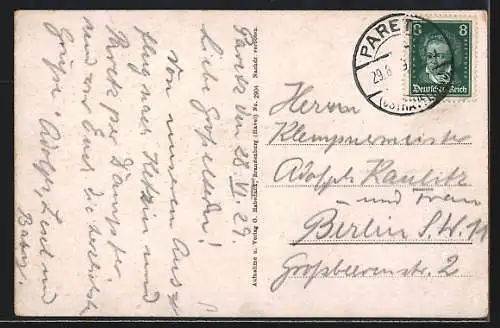 Paretz den 28. VI. 29.
Liebe Großeltern!
Von unserem Aus-
flug nach Ketzin und
Paretz per Dampfer
senden wir Euch die herzlichsten
Grüße. Adolf,
und
Baby.
Aufnahme u. Verlag O. Haberland, Brandenburg (Havel) Nr. 2904 Nachdr. verboten.
PARETZ
29.6
(OSTHAVELL
8 8
Deutsches Reich
Herrn
Klempnermeister
Adolph Kaulitz
und Frau
Berlin S.W. 11
Großbeerenstr. 2